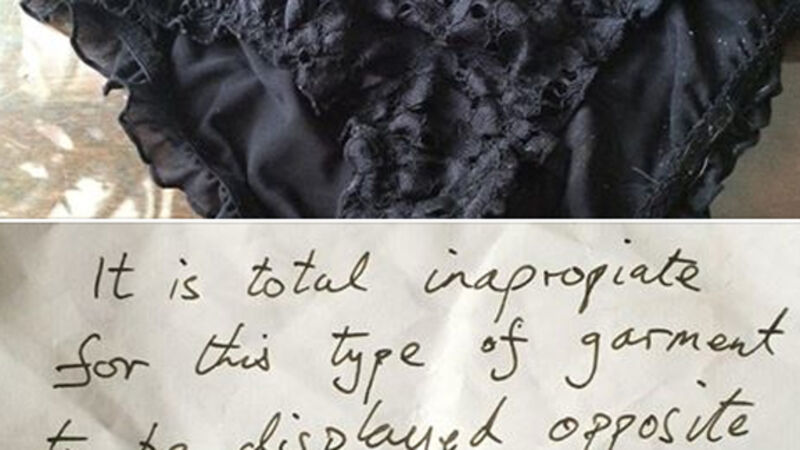 It is total inapropiate
for this type of garment
to be displayed opposite